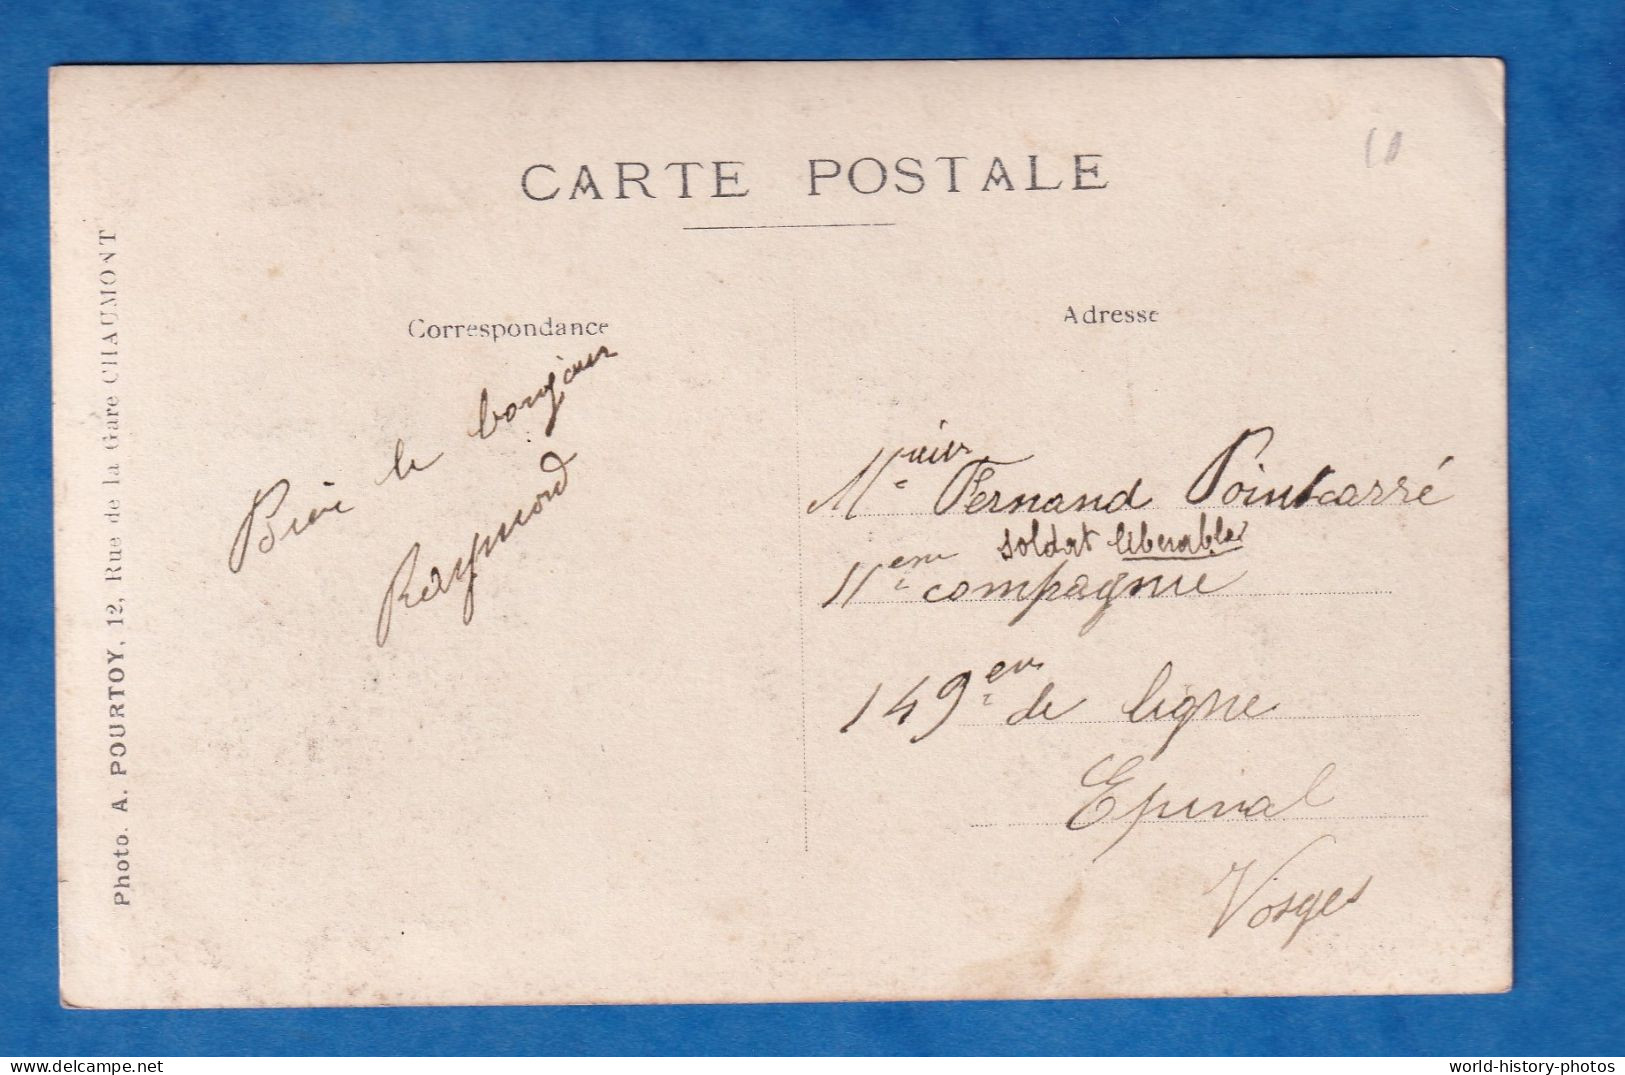 CARTE POSTALE
Correspondance
Adresse
Bien le bonjour
Raymond
Mr Fernand Pointcarré
soldat libérable
11eme compagnie
149em de ligne
Epinal
Vosges
Photo. A. POURTOY, 12, Rue de la Gare CHAUMONT
10
world-history-photos